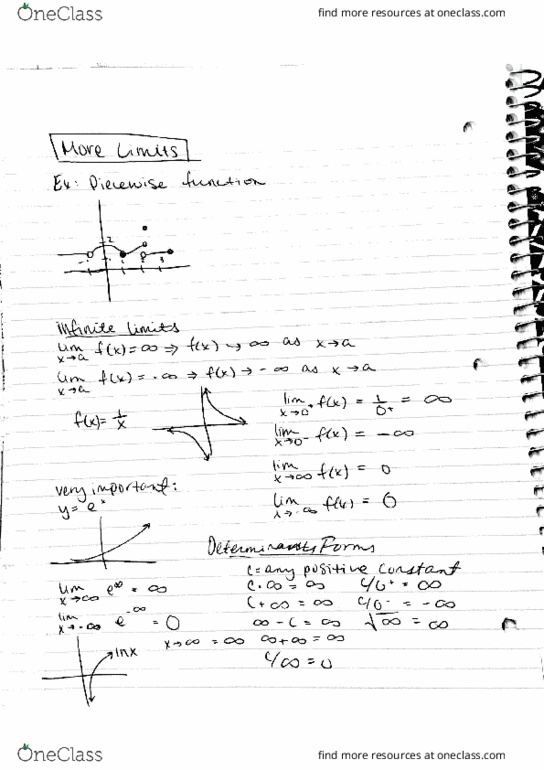 OneClass
find more resources at oneclass.com
More Limits
Ex: Piecewise function
2
Infinite Limits
lim x→a f(x) = ∞ ⇒ f(x) → ∞ as x→a
lim x→a f(x) = -∞ ⇒ f(x) → -∞ as x→a
f(x) = 1/x
lim x→0⁺ f(x) = 1/0⁺ = ∞
lim x→0⁻ f(x) = -∞
lim x→∞ f(x) = 0
lim x→-∞ f(x) = 0
very important:
y = eˣ
lim x→∞ e^∞ = ∞
lim x→-∞ e^-∞ = 0
x→∞ = ∞
lnx
Forms
C = any positive constant
C·∞ = ∞ C/0⁺ = ∞
C+∞ = ∞ C/0⁻ = -∞
∞-C = ∞ √∞ = ∞
∞+∞ = ∞
C/∞ = 0
OneClass
find more resources at oneclass.com